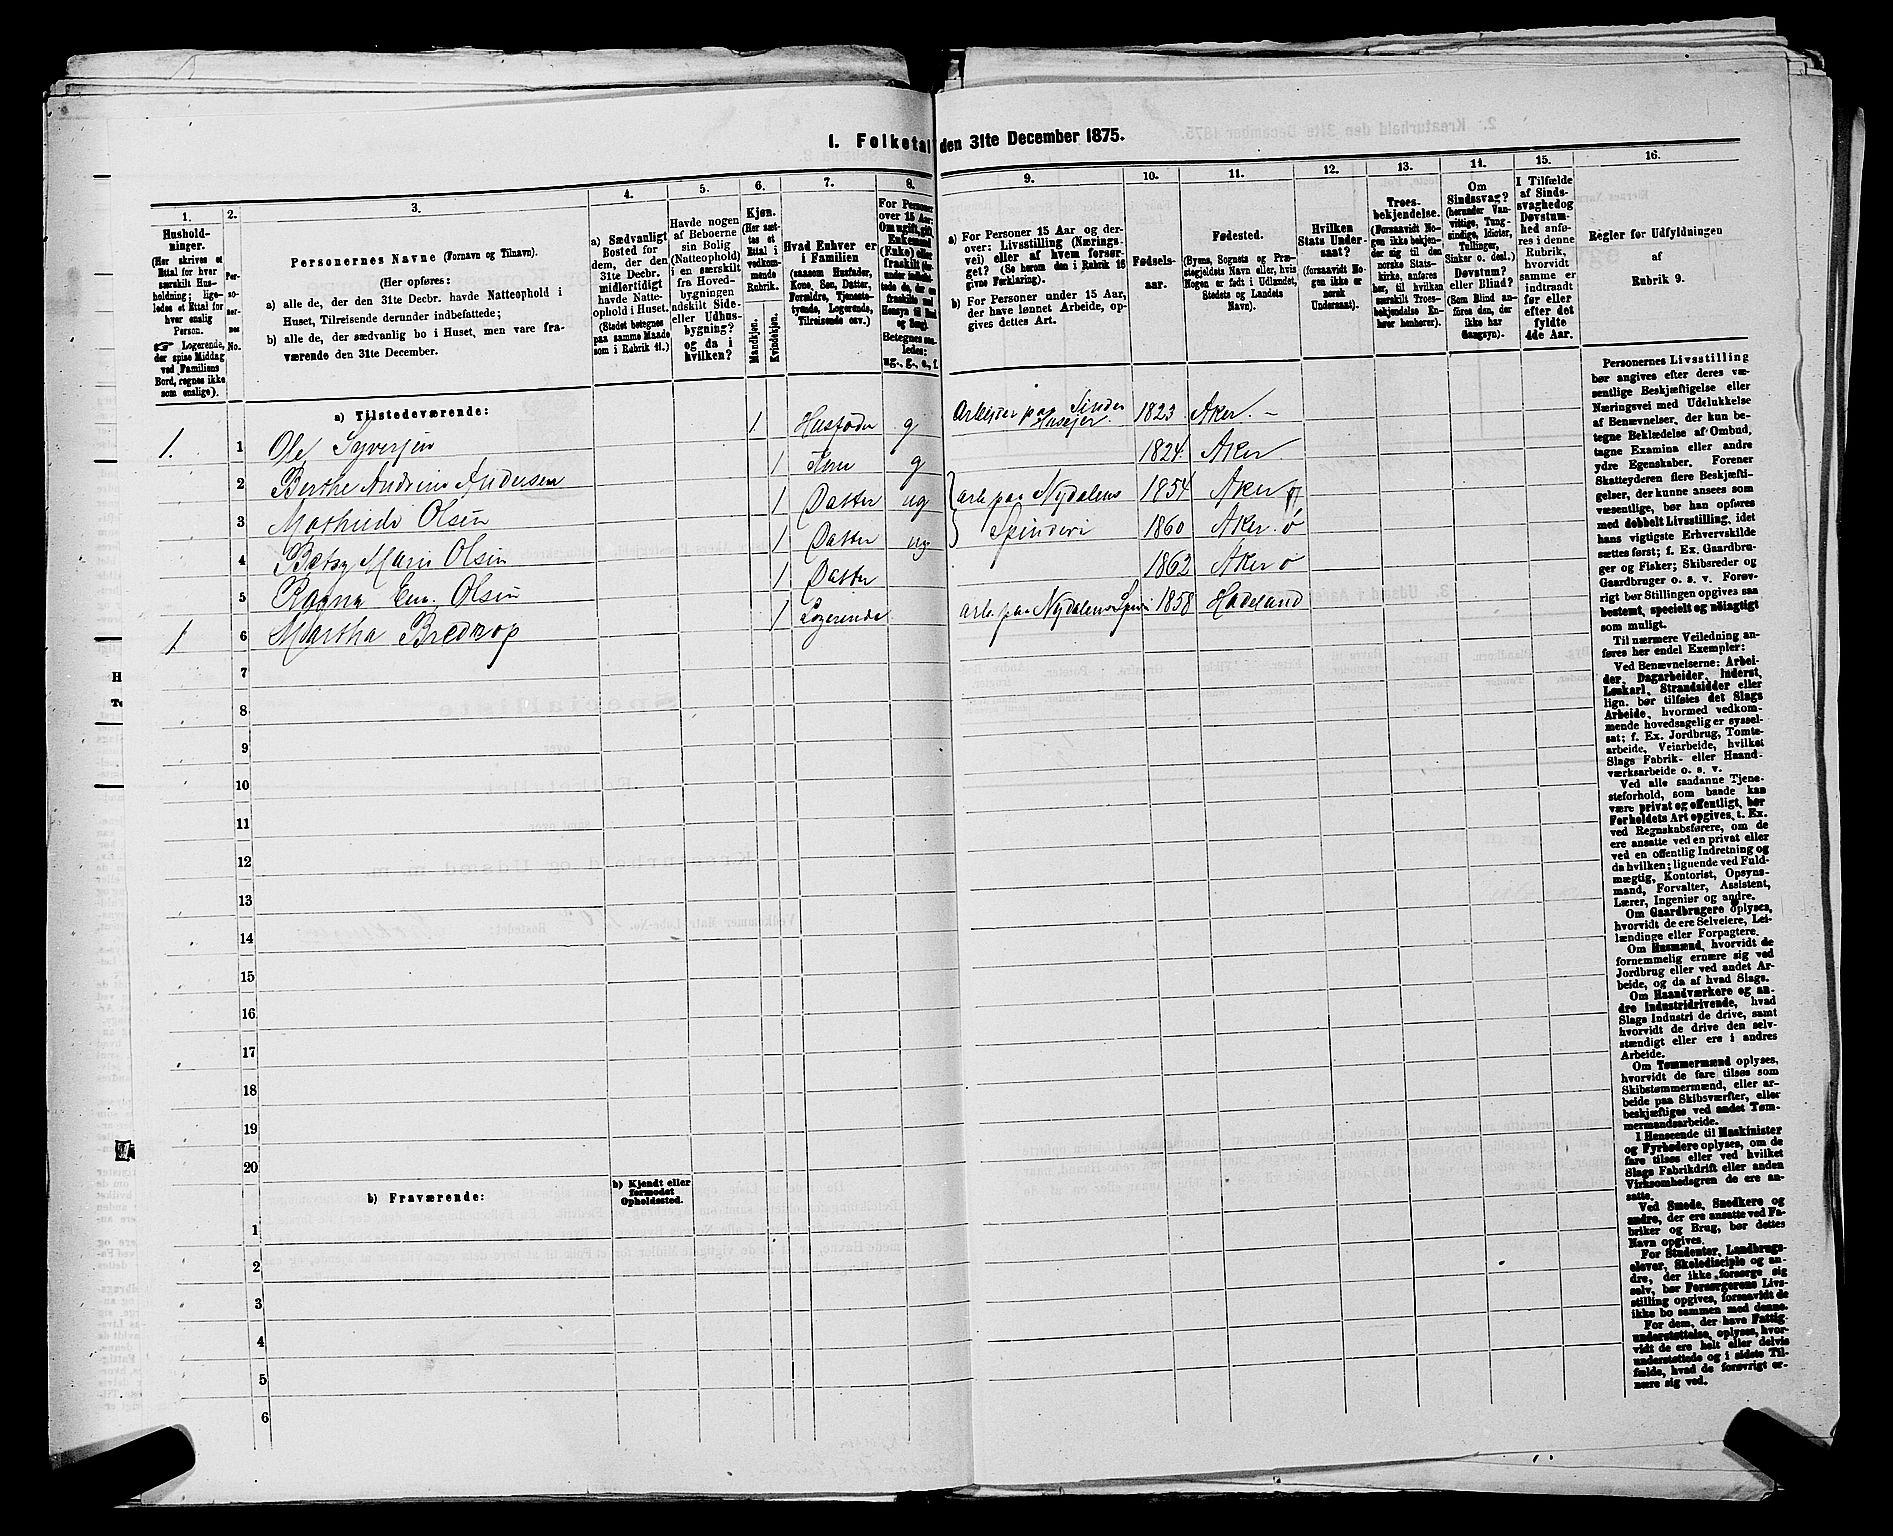 1. Folketal den 31te December 1875.
1.
2.
3.
4.
5.
6.
7.
8.
9.
10.
11.
12.
13.
14.
15.
16.
Hushold-
ninger.
(Her skrives et
Ettal for hver
særskilt Hus-
holdning; lige-
ledes et Ettal for
hver enslig
Person.
☞ Logerende,
der spise Middag
ved Familiens
Bord, regnes ikke
som enslige).
Per-
so-
ner-
nes
No.
Personernes Navne (Fornavn og Tilnavn).
(Her opføres:
a) alle de, der den 31te Decbr. havde Natteophold i
Huset, Tilreisende derunder indbefattede;
b) alle de, der sædvanlig bo i Huset, men vare fra-
værende den 31te December.
a) Sædvanligt
Bosted for
dem, der den
31te Decbr.
midlertidigt
havde Natte-
ophold i Huset.
(Stedet betegnes
paa samme Maade
som i Rubrik 11.)
Havde nogen
af Beboerne
sin Bolig
(Natteophold)
i en særskilt
fra Hoved-
bygningen
adskilt Side-
eller Udhus-
bygning?
og da i
hvilken?
Kjøn.
(Her sæt-
tes et
Ettal i
vedkom-
mende
Rubrik.
Mandkjøn.
Kvindekjøn.
Hvad Enhver er
i Familien
(saasom Husfader,
Kone, Søn, Datter,
Forældre, Tjeneste-
tyende, Logerende,
Tilreisende osv.)
For Personer
over 15 Aar:
Om ugift, gift,
Enkemand
(Enke) eller
fraskilt
Betegnes saa-
ledes:
ug., g., e., f.
a) For Personer 15 Aar og der-
over: Livsstilling (Nærings-
vei) eller af hvem forsør-
get? (Se herom den i Rubrik 16
givne Forklaring).
b) For Personer under 15 Aar,
der have lønnet Arbeide, op-
gives dettes Art.
Fødsels-
aar.
Fødested.
(Byens, Sognets og Præ-
stegjeldets Navn eller, hvis
Nogen er født i Udlandet,
Stedets og Landets
Navn).
Hvilken
Stats Under-
saat?
(forsaavidt No-
gen ikke er
norsk
Undersaat).
Troes-
bekjendelse.
(Forsaavidt No-
gen ikke bekjen-
der sig til den
norske Stats-
kirke, anføres
her, til hvilken
særskilt Troes-
bekjendelse En-
hver henhører).
Om
Sindssvag?
(herunder Van-
vittige, Tung-
sindige, Idioter,
Tullinger,
Sinker o. desl.)
Døvstum?
eller Blind?
(Som Blind an-
føres den, der
ikke har
Gangsyn).
I Tilfælde
af Sinds-
svaghed og
Døvstum-
hed anfø-
res i denne
Rubrik,
hvorvidt
samme er
indtraadt
før eller
efter det
fyldte
4de Aar.
Regler for Udfyldningen
af
Rubrik 9.
a) Tilstedeværende:
1. 1 Ole Syversen 1 Husfader g Arbeider paa 1823 Aker. –
2 Berthe Andrine Andersen 1 Kone g 1824 Aker
3 Mathilde Olsen 1 Datter ug arb paa Nydalens 1854 Aker
4 Betsy Marie Olsen 1 Datter ug Spinderi 1860 Aker ø
5 Ragna Em. Olsen 1 Datter 1862 Aker ø
1 6 Martha Bredrop 1 Logerende arb paa Nydalens Spin 1858 Hadeland
7
8
9
10
11
12
13
14
15
16
17
18
19
20
b) Fraværende:
b) Kjendt eller
formodet
Opholdssted.
1
2
3
4
5
6
Personernes Livsstilling
bør angives efter deres væ-
sentlige Beskjæftigelse eller
Næringsvei med Udelukkelse
af Benævnelser, der kun be-
tegne Beklædelse af Ombud,
tagne Examina eller andre
ydre Egenskaber. Forener
Skatteyderen flere Beskjæfti-
gelser, der kunne ansees som
væsentlige, bør han opføres
med dobbelt Livsstilling, idet
hans vigtigste Erhvervskilde
sættes først; f. Ex. Gaardbru-
ger og Fisker; Skibsreder og
Gaardbruger o. s. v. Forøv-
rigt bør Stillingen opgives saa
bestemt, specielt og nøiagtigt
som muligt.
Til nærmere Veiledning an-
føres her endel Exempler:
Ved Benævnelserne: Arbei-
der, Dagarbeider, Inderst,
Løskarl, Strandsidder eller
lign. bør tilføies det Slags
Arbeide, hvormed vedkom-
mende hovedsagelig er syssel-
sat; f. Ex. Jordbrug, Tomte-
arbeide, Veiarbeide, hvilket
Slags Fabrik- eller Haand-
værksarbeide o. s. v.
Ved alle saadanne Tjene-
steforhold, som baade kan
være privat og offentligt, bør
Forholdets Art opgives, t. Ex.
ved Regnskabsførere, om de
ere ansatte ved en privat eller
ved en offentlig Indretning og
da hvilken; lignende ved Fuld-
mægtig, Kontorist, Opsyns-
mand, Forvalter, Assistent,
Lærer, Ingeniør og andre.
Om Gaardbrugere oplyses,
hvorvidt de ere Selveiere, Lei-
lændinge eller Forpagtere.
Om Husmænd, hvorvidt de
fornemmelig ernære sig ved
Jordbrug eller ved andet Ar-
beide, og da af hvad Slags.
Om Haandværkere og an-
dre Industridrivende, hvad
Slags Industri de drive, samt
hvorvidt de drive den selv-
stændigt eller ere i andres
Arbeide.
Om Tømmermænd oplyses,
hvorvidt de fare tilsøs som
Skibstømmermænd, eller ar-
beide paa Skibsværfter, eller
beskjæftiges ved andet Tøm-
mermandsarbeide.
I Henseende til Maskinister
og Fyrbødere oplyses, om de
fare tilsøs eller ved hvilket
Slags Fabrikdrift eller anden
Virksomhedsgren de ere an-
satte.
Ved Smede, Snedkere og
andre, der ere ansatte ved Fa-
briker og Brug, bør dettes
Navn opgives.
For Studenter, Landbrugs-
elever, Skoledisciple og an-
dre, der ikke forsørge sig
selv, bør Forsørgerens Livs-
stilling opgives, forsaavidt de
ikke bo sammen med denne.
For dem, der have Fattig-
understøttelse, oplyses, hvor-
vidt de ere helt eller delvis
understøttede og i sidste Til-
fælde, hvad de forøvrigt er-
nære sig ved.